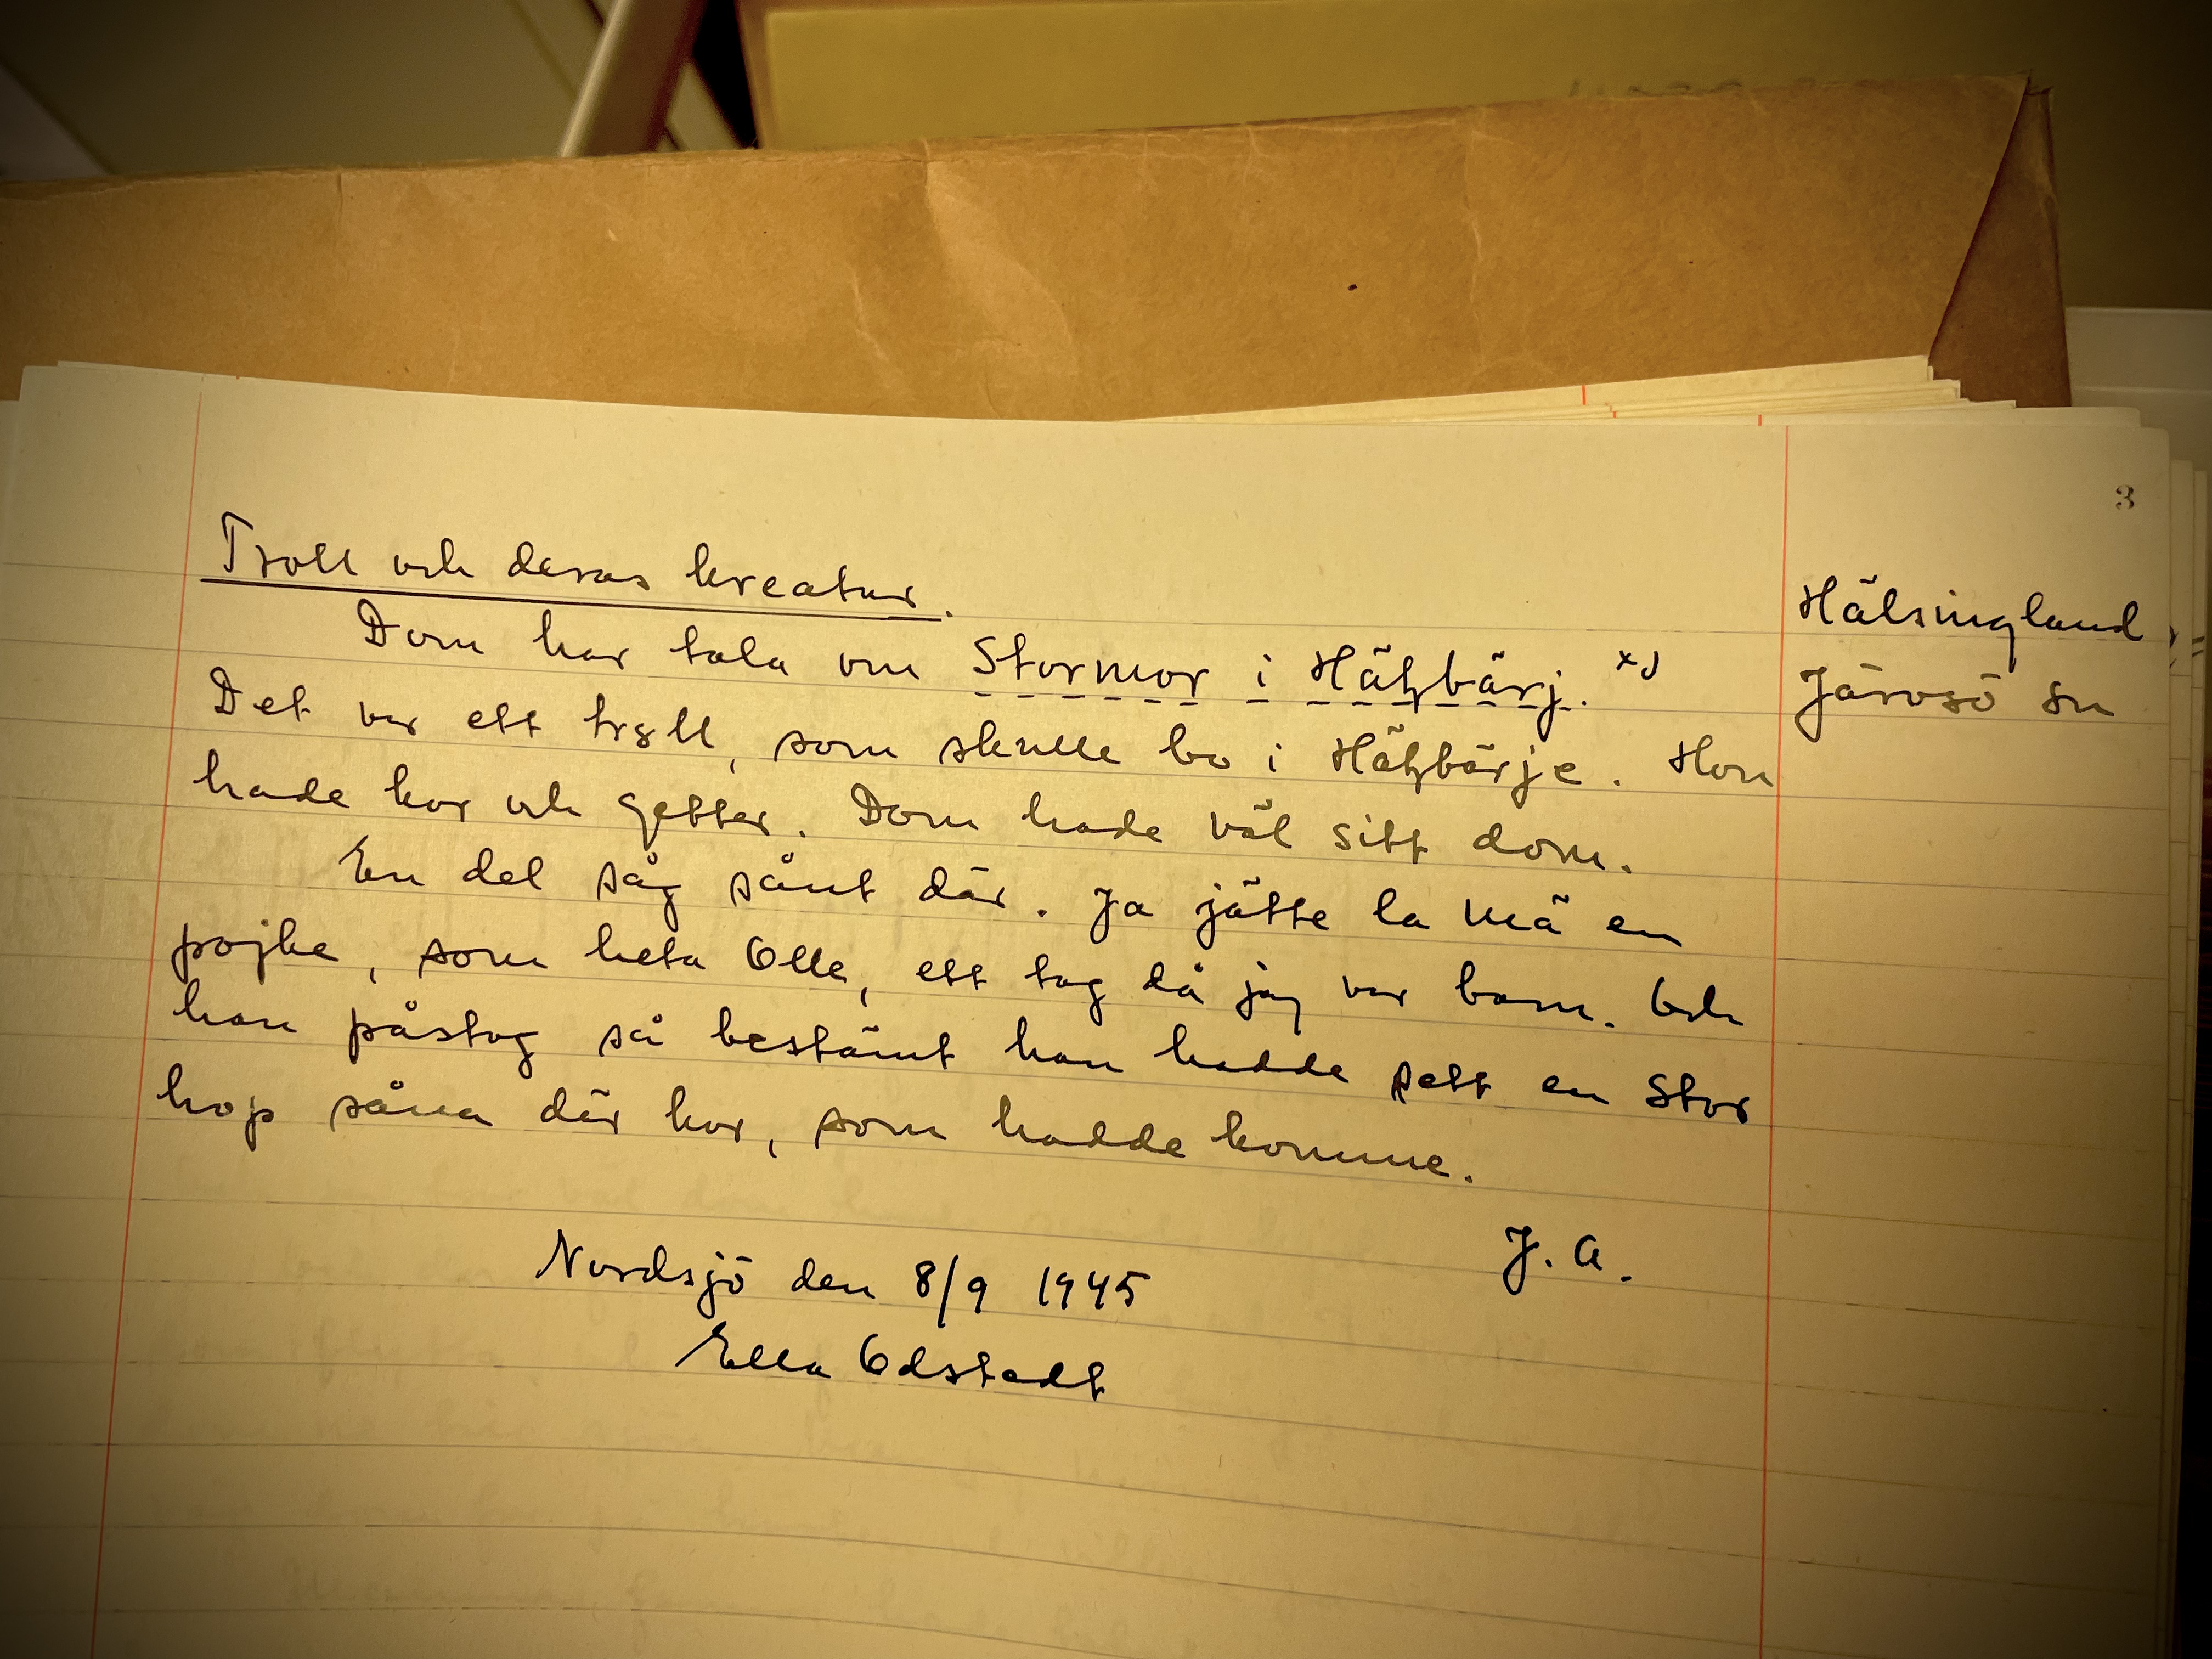 3
Troll och deras kreatur.
Hälsingland
Dom har tala om Stormor i Häʒbärj. x)
Järvsö sn
Det var ett trɤll, som skulle bo i Häʒbärje. Hon
hade kor och getter. Dom hade väl sitt dom.
En del såg sånt där. Ja jätte la mä en
pojke, som heta Olle, ett tag då jag var barn. Och
han påstog så bestämt han hadde sett en stor
hop såna där kor, som hadde komme.
J. A.
Nordsjö den 8/9 1945
Ella Odstedt